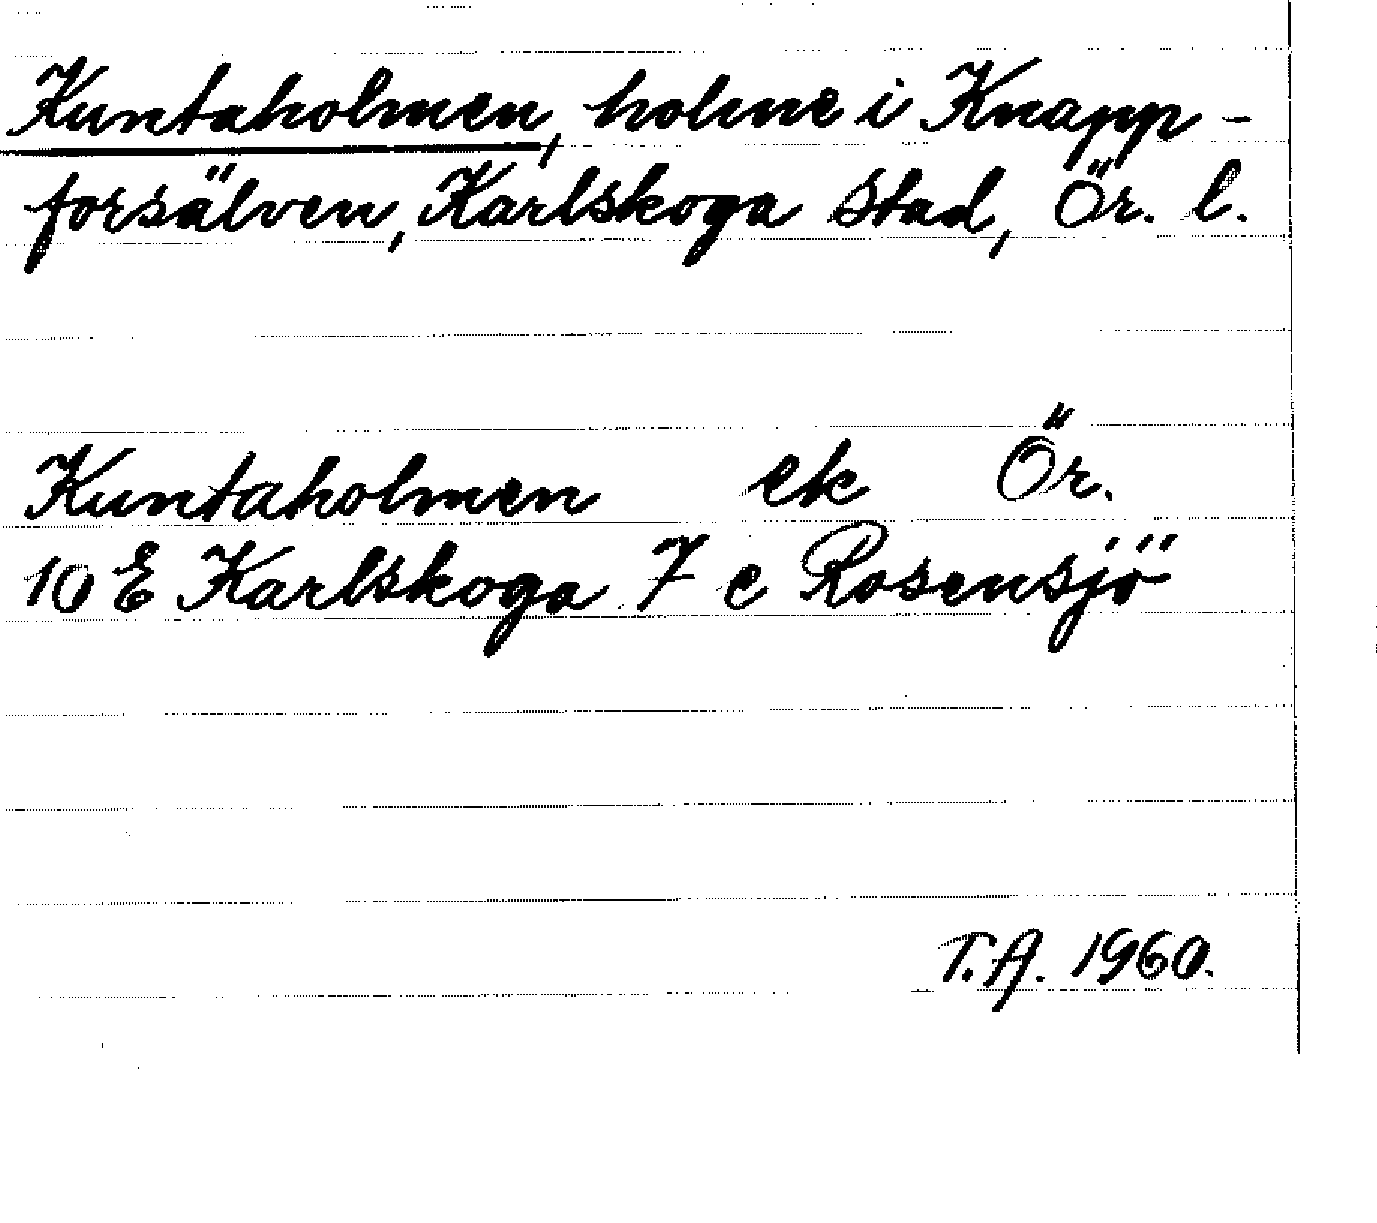 Kuntaholmen, holme i Knapp-
forsälven, Karlskoga stad, Ör. l.
Kuntaholmen ek Ör.
10 E Karlskoga 7 c Rosensjö
T.A. 1960.